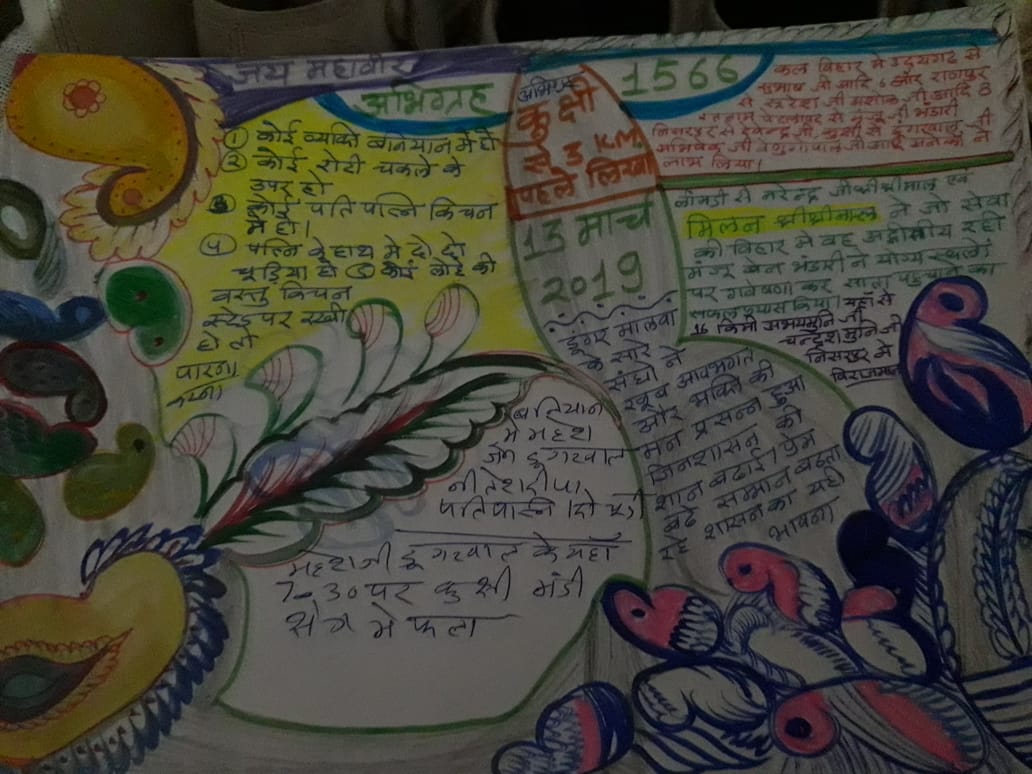 जय महावीर
अभिग्रह
① कोई व्यक्ति बनियान मे हो
② कोई रोटी चकले के
उपर हो
③ कोई पति पत्नि किचन
मे हो।
④ पत्नि के हाथ मे दो दो
चूड़िया हो ⑤ कोई लोहे की
वस्तु किचन
स्टेण्ड पर रखी
हो तो
पारना
करना
अभिग्रह
कुक्षी
से 3 K.M.
पहले लिखा
13 मार्च
2019
1566
कल विहार मे उदयगढ से
सुभाष जी आदि 6 और राणापुर
से सुरेश जी आदि 8
भंडारी
निसरपुर से देवेन्द्र जी कुक्षी से
लाभ लिया।
से नरेन्द्र श्रीश्रीमाल एवं
मिलन श्रीश्रीमाल ने जो सेवा
की विहार मे वह अद्वितीय रही
मंजू बेन भंडारी ने योग्य स्थलों
पर गवेषणा कर साता पहुचाने का
सफल प्रयास किया। यहा से
16 किमी अभयमुनि जी
चन्द्रेश मुनि जी
निसरपुर मे
विराजमान
डूंगर मालवा
के सारे
संघो ने
खूब आवभगत
और भक्ति की
मन प्रसन्न हुआ
जिनशासन की
शान बढाई। प्रेम
बढे सम्मान बढता
रहे शासन का यही
भावना
बनियान
मे महेश
जी डूंगरवाल
पति पत्नि
महेश जी डूंगरवाल के यहाँ
7-30 पर कुक्षी मंडी
मे फला